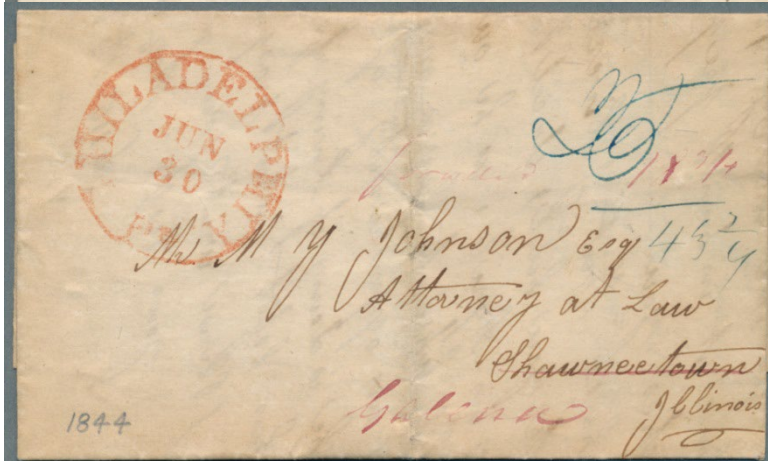 PHILADELPHIA
JUN
30
Pa.
25
forward
18 3/4
43 3/4
Mr M Y Johnson Esq
Attorney at Law
Shawneetown
Galena
Illinois
1844